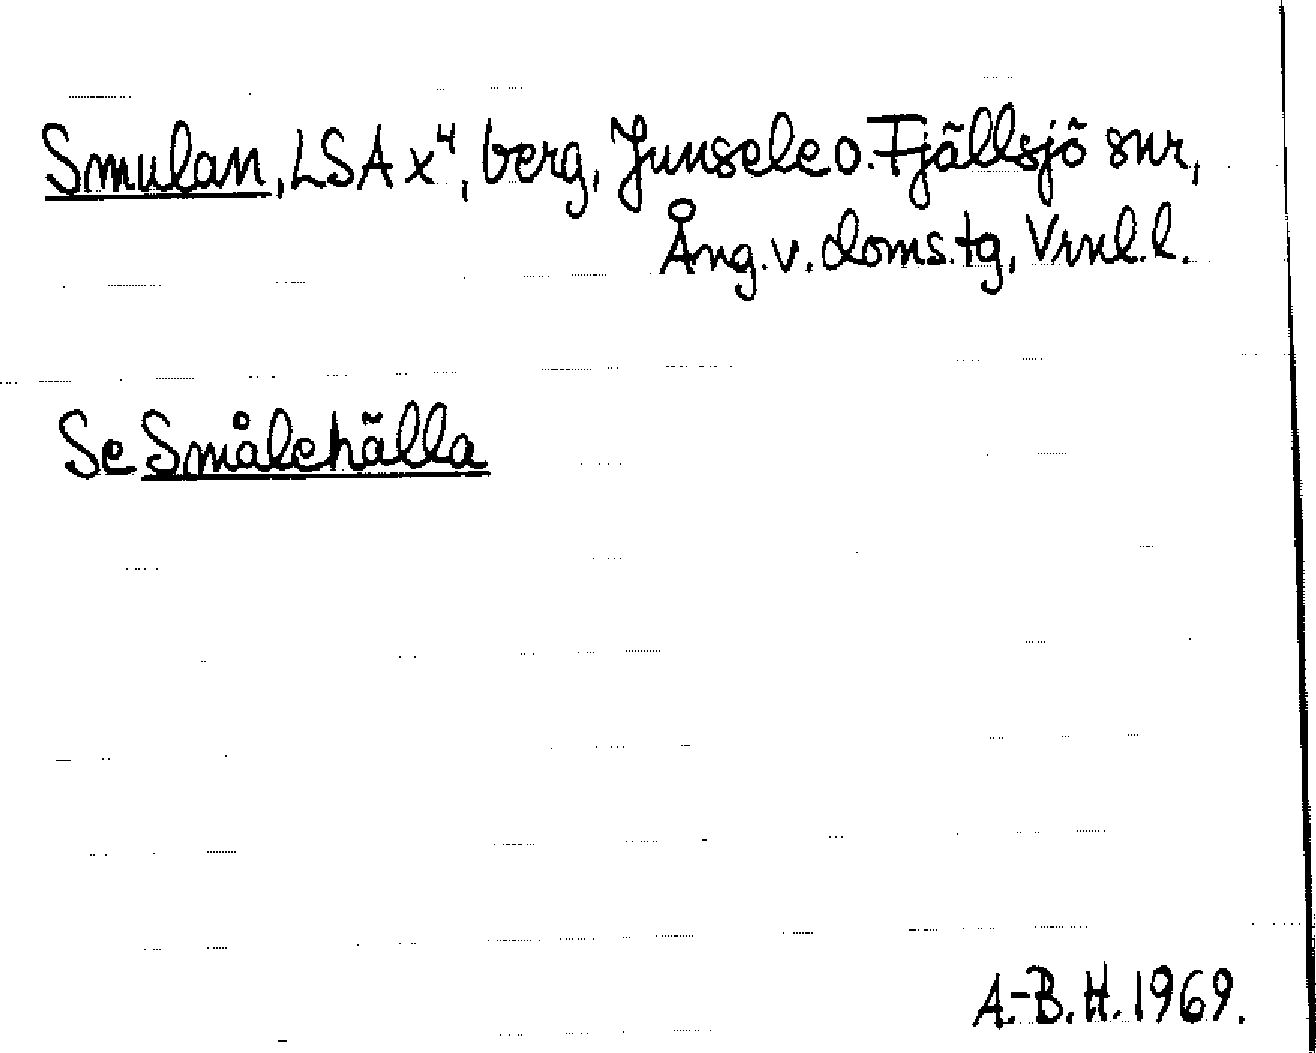 Smulan, LSA x⁴, berg, Junsele o. Fjällsjö snr,
Ång. v. doms.tg, Vrnl. l.
Se Smålehälla
A.-B. H. 1969.